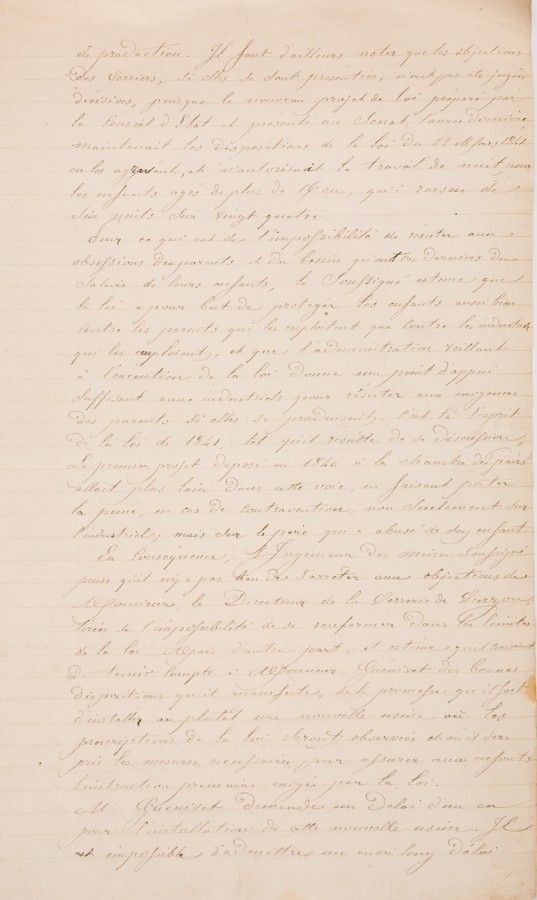 de production. Il faut d'ailleurs noter que les objections
des verriers, si elles se sont présentées, n'ont pas été jugées
décisives, puisque le nouveau projet de loi préparé par
le Conseil d'Etat et présenté au Senat l'année dernière,
maintenait les dispositions de la loi du 22 Mars 1841
en les aggravant, et n'autorisait le travail de nuit pour
les enfants agés de plus de 16 ans, qu'à raison de
six nuits sur vingt quatre.
Pour ce qui est de l'impossibilité de résister aux
obsessions des parents et du besoin qu'ont ces derniers du
salaire de leurs enfants, le Soussigné estime que
la loi a pour but de protéger les enfants aussi bien
contre les parents qui les exploitent que contre les industriels
qui les emploient, et que l'administration veillant
à l'exécution de la loi donne un point d'appui
suffisant aux industriels pour résister aux exigences
des parents si elles se produisent. C'est là l'esprit
de la loi de 1841, tel qu'il résulte de sa discussion.
Le premier projet déposé en 1840 à la chambre des pairs
allait plus loin dans cette voie, en faisant porter
la peine, en cas de contravention, non seulement sur
l'industriel, mais sur le père qui a abusé de son enfant
En Conséquence, l'Ingenieur des mines Soussigné
pense qu'il n'y a pas lieu de s'arrêter aux objections de
Monsieur le Directeur de la Verrerie de Vierzon,
tirées de l'impossibilité de se renfermer dans les limites
de la loi. Mais, d'autre part, il estime qu'il convient
de tenir compte à Monsieur Guéniset des bonnes
dispositions qu'il manifeste, de la promesse qu'il fait
d'installer au plutôt une nouvelle usine où les
prescriptions de la loi seront observées et où il sera
pris les mesures nécessaires pour assurer aux enfants
l'instruction primaire exigée par la loi.
M. Guéniset demande un Délai d'un an
pour l'installation de cette nouvelle usine. Il
est impossible d'admettre un aussi long Délai